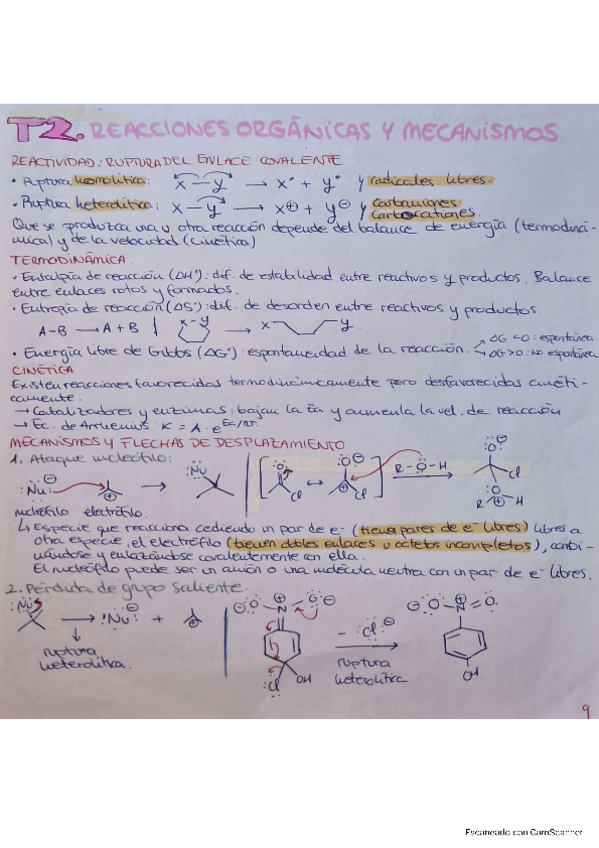 T2. REACCIONES ORGÁNICAS Y MECANISMOS
REACTIVIDAD: RUPTURA DEL ENLACE COVALENTE
• Ruptura homolítica: x—y → x• + y• y radicales libres.
• Ruptura heterolítica: x—y → x⊕ + y⊖ y carbaniones carbocationes.
Que se produzca una u otra reacción depende del balance de energía (termodiná-
mica) y de la velocidad (cinética)
TERMODINÁMICA.
• Entalpía de reacción (ΔH°): dif. de estabilidad entre reactivos y productos. Balance
entre enlaces rotos y formados.
• Entropía de reacción (ΔS°): dif. de desorden entre reactivos y productos.
A-B → A + B | x-y → x y
• Energía libre de Gibbs (ΔG°): espontaneidad de la reacción. ΔG<0: espontánea
ΔG>0: NO espontánea
CINÉTICA
Existen reacciones favorecidas termodinámicamente pero desfavorecidas cinéti-
camente.
→ Catalizadores y enzimas: bajan la Ea y aumenta la vel. de reacción
→ Ec. de Arrhenius: K = A · e^Ea/RT.
MECANISMOS Y FLECHAS DE DESPLAZAMIENTO
1. Ataque nucleófilo:
:Nu:⊖ ⊕ → :Nu | [ :O: Cl ↔ :O:⊖ ⊕ Cl ] R-O-H → :O:⊖ Cl :O⊕ R H
nucleófilo electrófilo
↳ Especie que reacciona cediendo un par de e- (tiene pares de e- libres) libres a
otra especie, el electrófilo (tienen dobles enlaces u octetos incompletos), combi-
nándose y enlazándose covalentemente con ella.
El nucleófilo puede ser un anión o una molécula neutra con un par de e- libres.
2. Pérdida de grupo saliente.
:Nu → :Nu:⊖ + ⊕ | ⊖:O N⊕ O:⊖ :Cl: OH - :Cl:⊖ → ⊖:O N⊕ =O: OH
ruptura
heterolítica.
ruptura
heterolítica
9
Escaneado con CamScanner